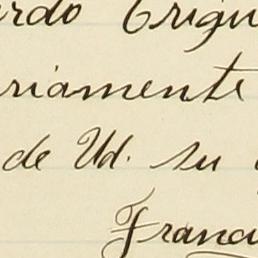 ardo Trigu
riamente
de Ud. su
Franci